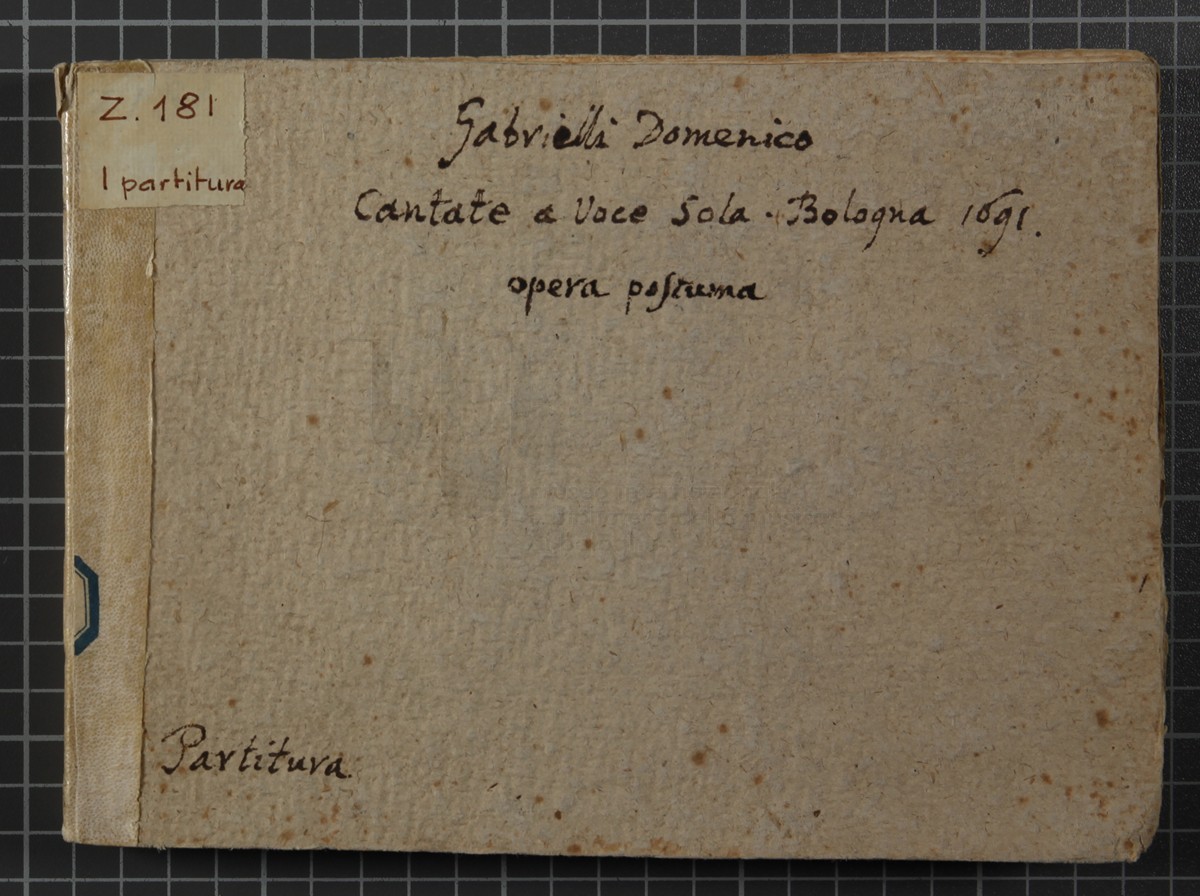 Z. 181
1 partitura
Gabrielli Domenico
Cantate a Voce Sola. Bologna 1691.
opera postuma
Partitura